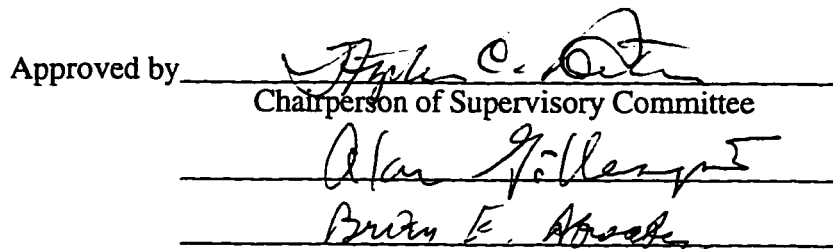 Approved by Stephen C.
Chairperson of Supervisory Committee
Alan Gillespie
Brian E.